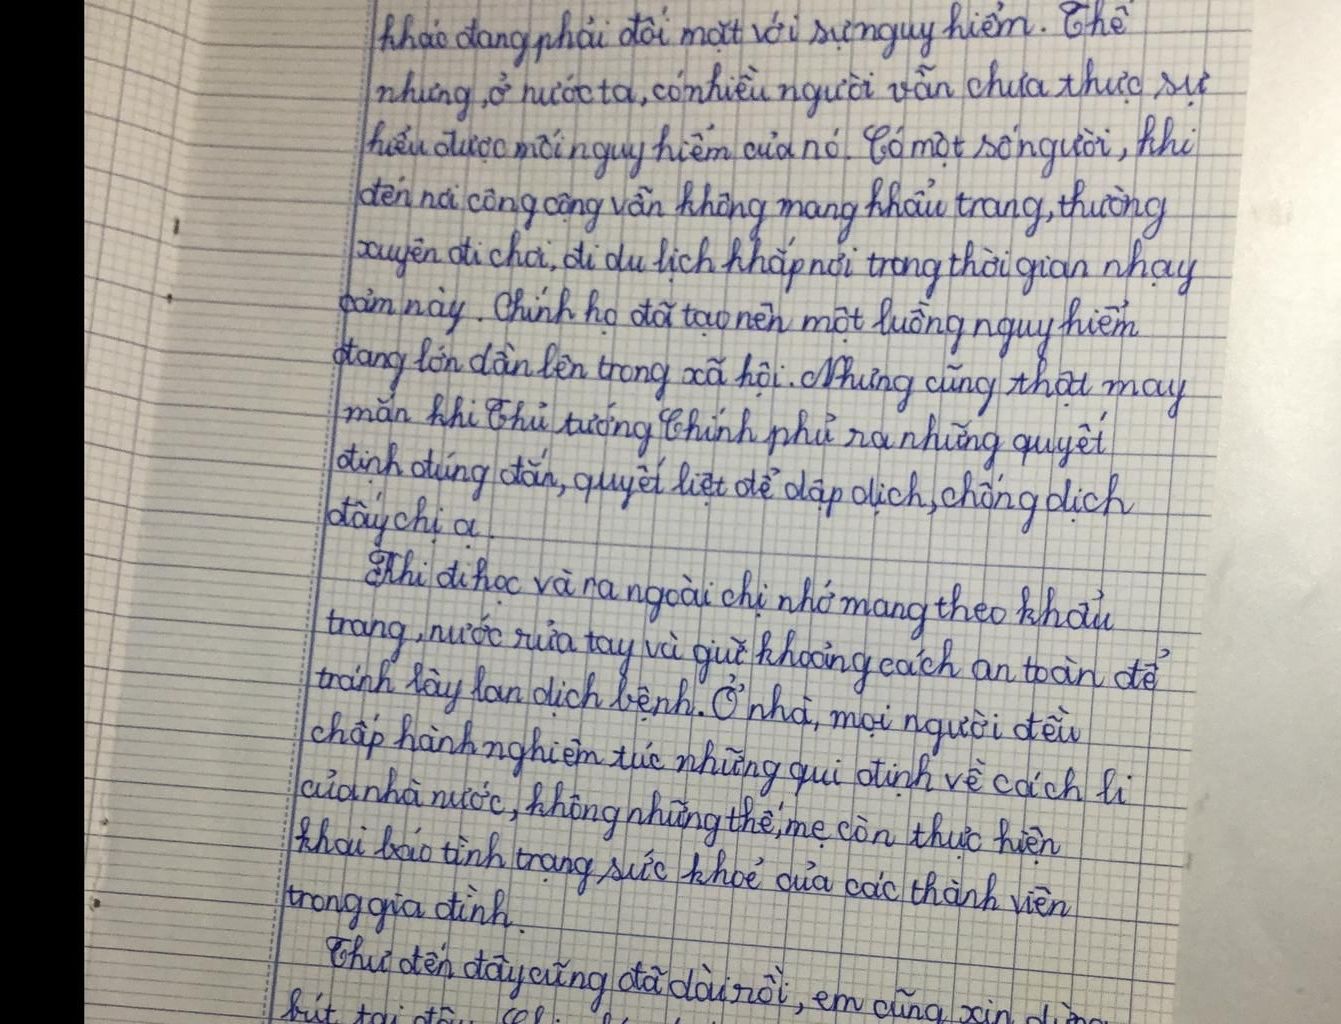 khác đang phải đối mặt với sự nguy hiểm. Thế
nhưng, ở nước ta, có nhiều người vẫn chưa thực sự
hiểu được mối nguy hiểm của nó. Có một số người, khi
đến nơi công cộng vẫn không mang khẩu trang, thường
xuyên đi chơi, đi du lịch khắp nơi trong thời gian nhạy
cảm này. Chính họ đã tạo nên một luồng nguy hiểm
đang lớn dần lên trong xã hội. Nhưng cũng thật may
mắn khi Thủ tướng Chính phủ ra những quyết
định đúng đắn, quyết liệt để dập dịch, chống dịch
đấy chị ạ.
Khi đi học và ra ngoài chị nhớ mang theo khẩu
trang, nước rửa tay và giữ khoảng cách an toàn để
tránh lây lan dịch bệnh. Ở nhà, mọi người đều
chấp hành nghiêm túc những qui định về cách li
của nhà nước, không những thế, mẹ còn thực hiện
khai báo tình trạng sức khoẻ của các thành viên
trong gia đình.
Thư đến đây cũng đã dài rồi, em cũng xin dừng
bút tại đây.